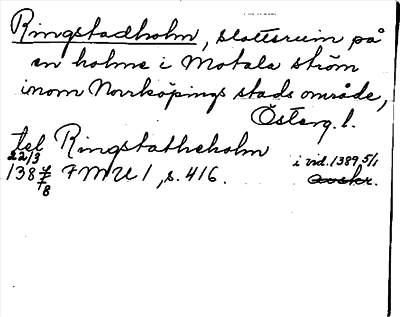 Ringstadholm, slottsruin på
en holme i Motala ström
inom Norrköpings stads område,
Österg. l.
tel Ringstatheholm
22/3 i vid. 1389 5/1
138 FMU 1, s. 416. avskr.